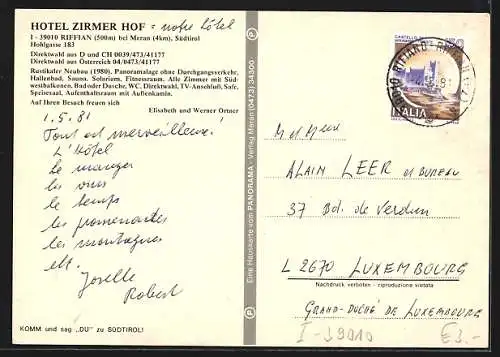 HOTEL ZIRMER HOF = notre hôtel
I - 39010 RIFFIAN (500m) bei Meran (4km), Südtirol
Hohlgasse 183
Direktwahl aus D und CH 0039/473/41177
Direktwahl aus Österreich 04/0473/41177
Rustikaler Neubau (1980). Panoramalage ohne Durchgangsverkehr,
Hallenbad, Sauna, Solarium, Fitnessraum. Alle Zimmer mit Süd-
westbalkonen, Bad oder Dusche, WC, Direktwahl, TV-Anschluß, Safe,
Speisesaal, Aufenthaltsraum mit Außenkamin.
Auf Ihren Besuch freuen sich
Elisabeth und Werner Ortner
1.5.81
Tout est merveilleux!
L'Hôtel
le manger
les vins
le temps
les promenades
les montagnes
etc.
Joselle
Robert
KOMM und sag „DU" zu SÜDTIROL!
Eine Hauskarte vom PANORAMA - Verlag Meran (0473) 34300
CASTELLO DI
ITALIA
39010
M et Mme
ALAIN LEER et BUREAU
37 Bd. de Verdun
L 2670 LUXEMBOURG
Nachdruck verboten - riproduzione vietata
GRAND-DUCHÉ DE LUXEMBOURG
I-39010
€3.-